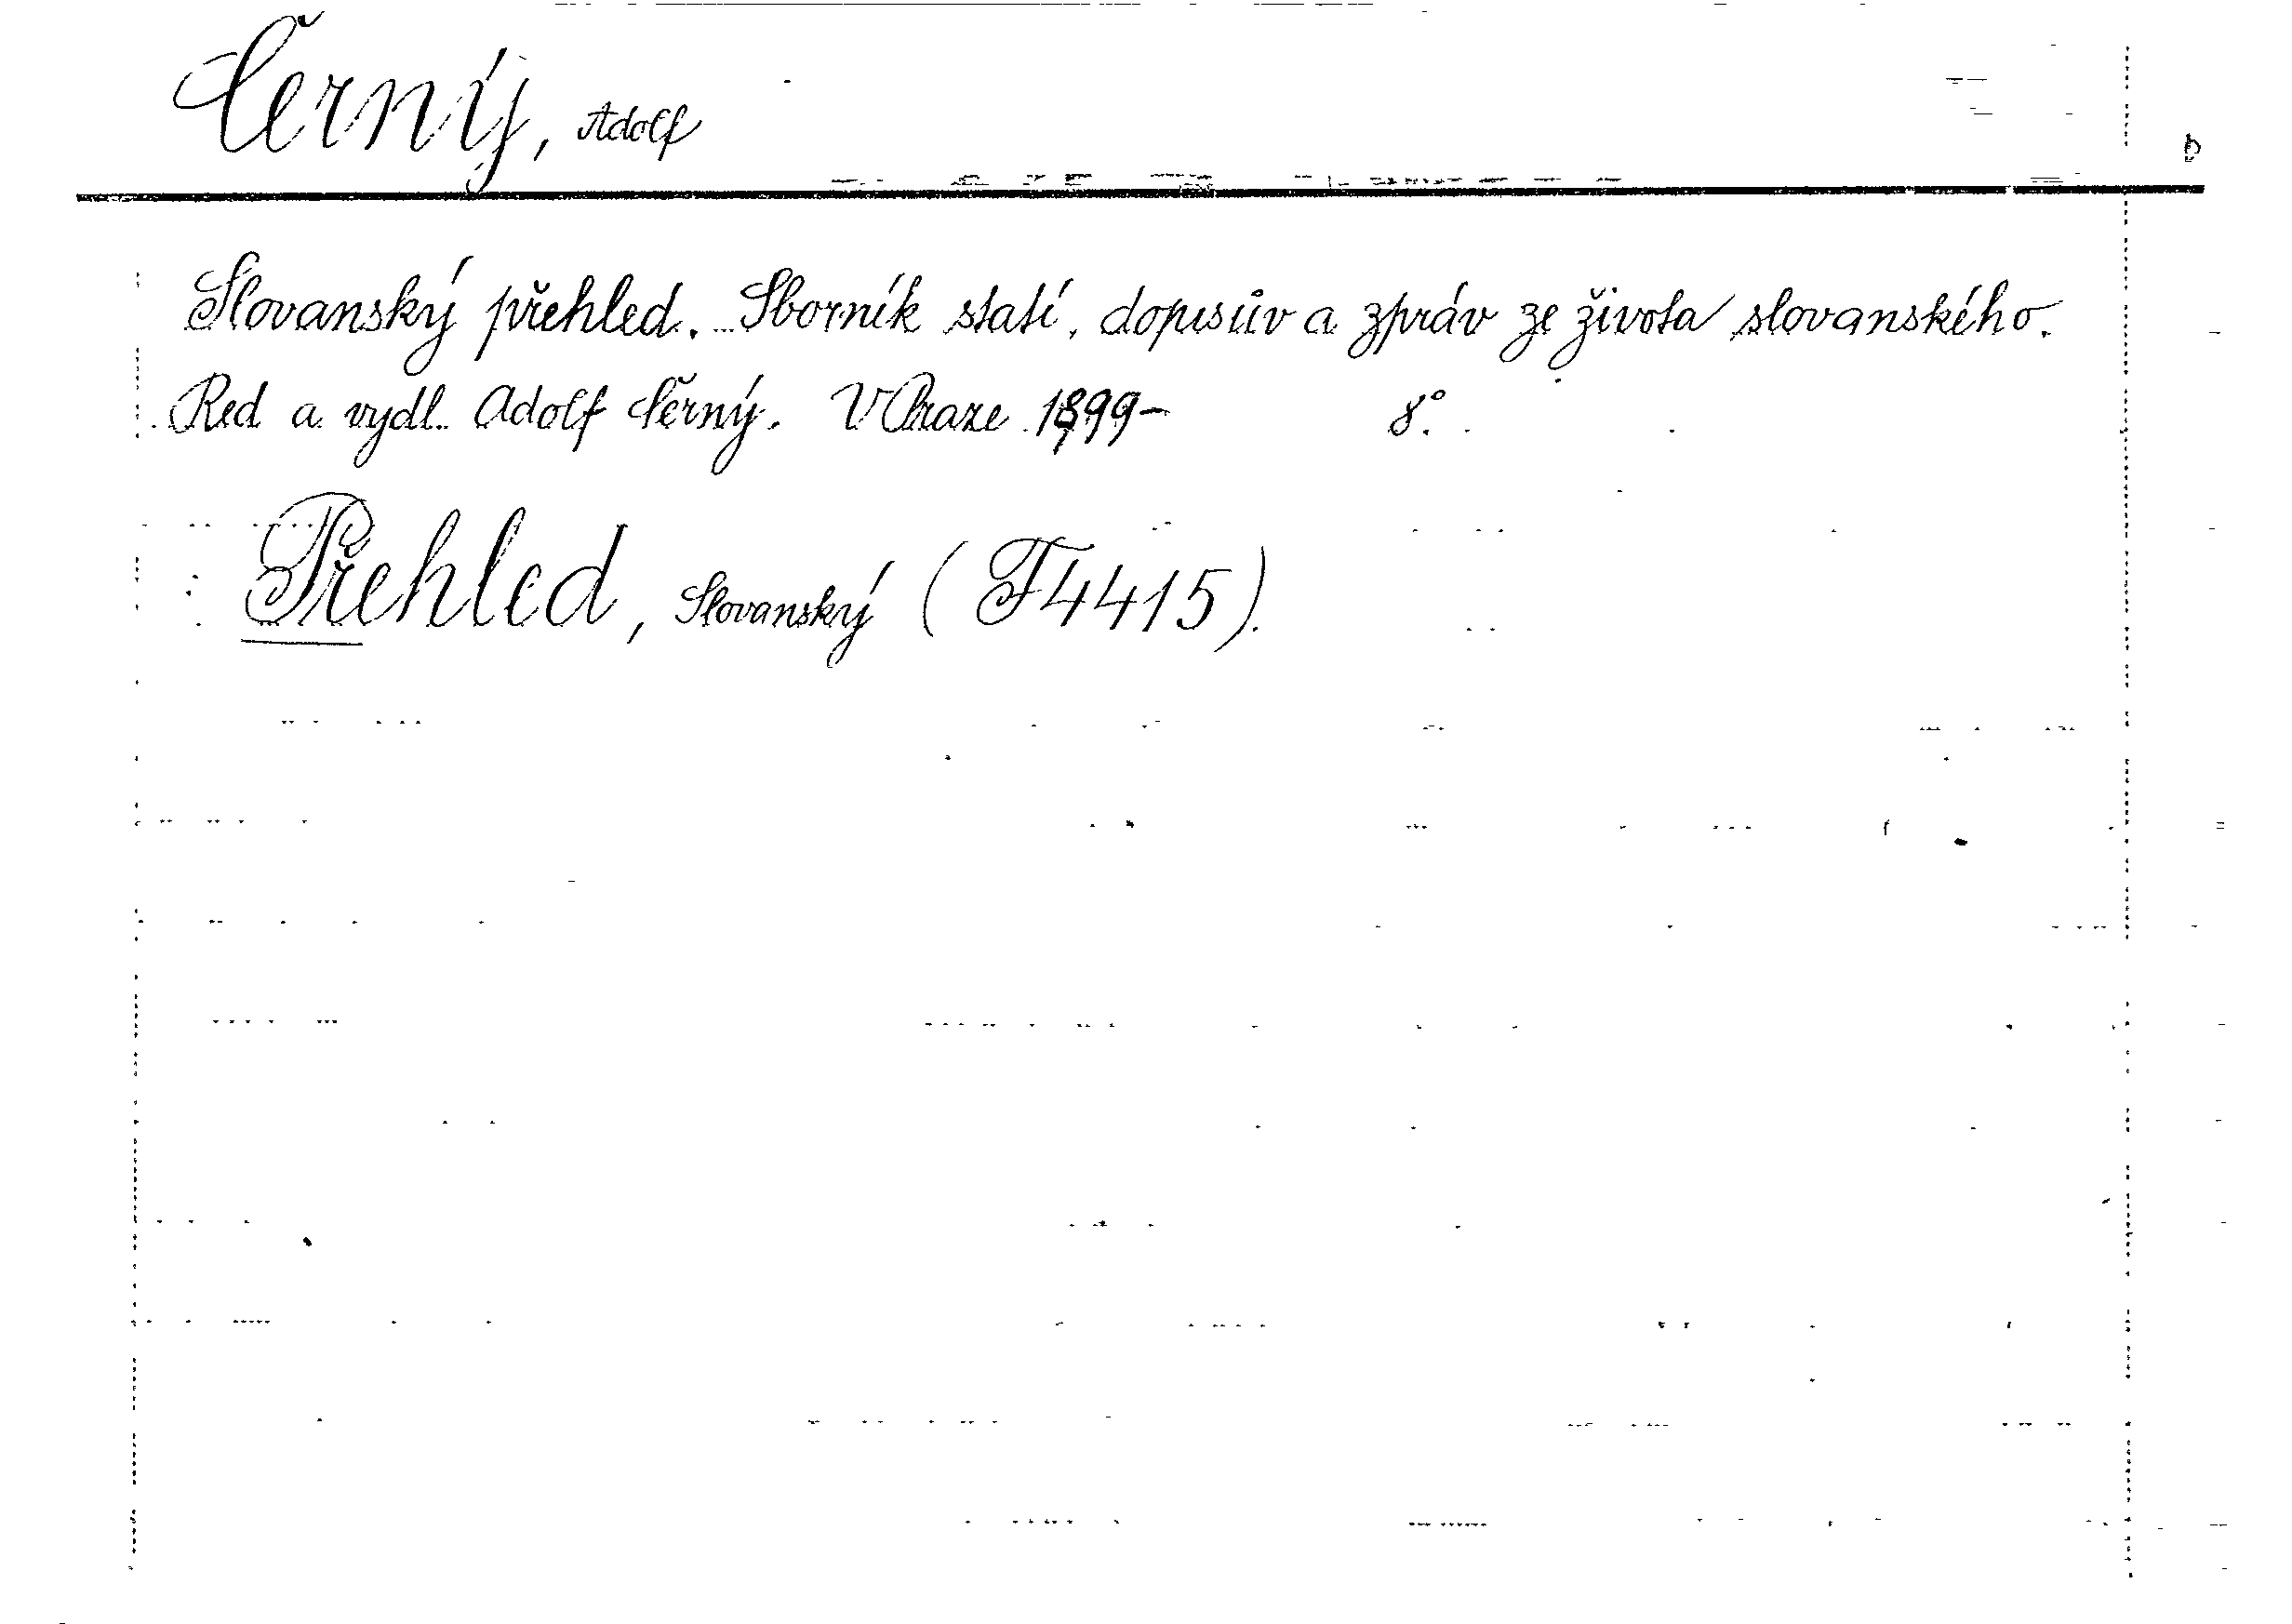 Černý, Adolf
Slovanský přehled. Sborník statí, dopisův a zpráv ze života slovanského.
Red a vydl. Adolf Černý. V Praze 1899- 8°.
Přehled, Slovanský (F4415).